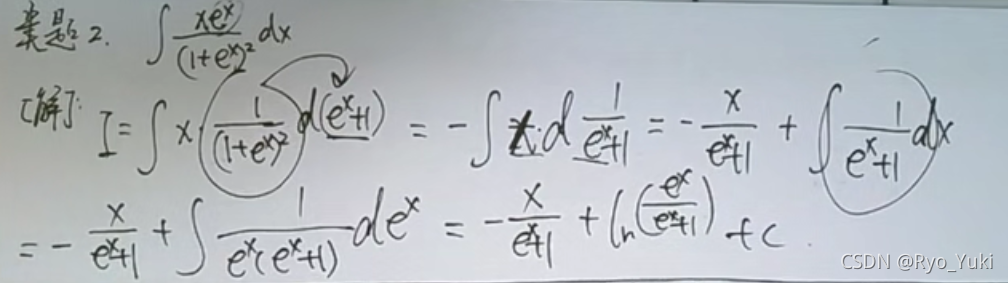 类题2. ∫ xe^x/(1+e^x)^2 dx
[解]: I = ∫ x · 1/(1+e^x)^2 d(e^x+1) = -∫ x · d 1/(e^x+1) = - x/(e^x+1) + ∫ 1/(e^x+1) dx
= - x/(e^x+1) + ∫ 1/(e^x(e^x+1)) de^x = - x/(e^x+1) + ln(e^x/(e^x+1)) + C.
CSDN @Ryo_Yuki